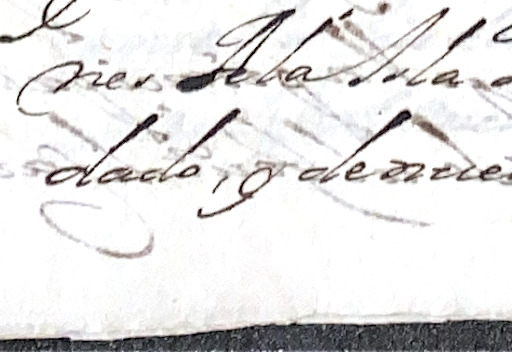 nes dela Isla
dado, y denue